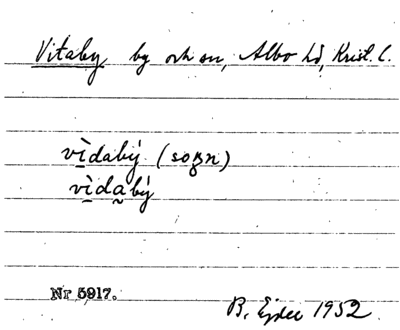 Vitaby by och sn, Albo hd, Krist. l.
vìdabý (soʀn)
vìdabý
Nr 5917.
B. Ejder 1952